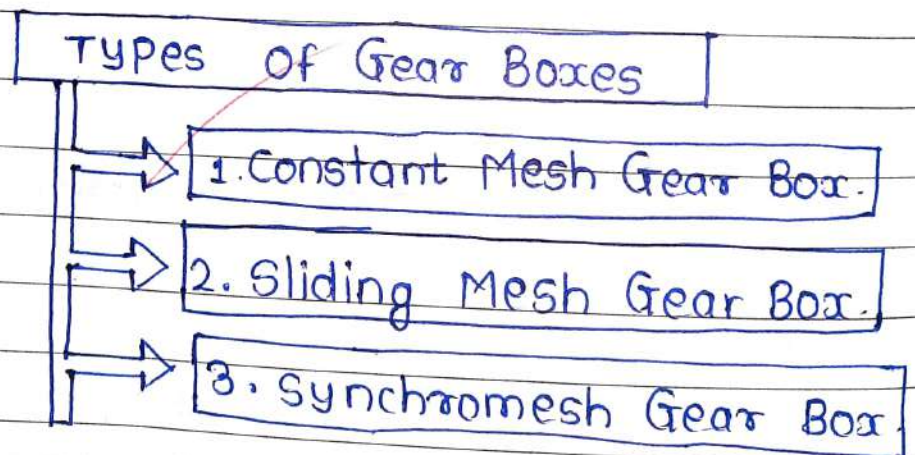 Types of Gear Boxes
1. Constant Mesh Gear Box.
2. Sliding Mesh Gear Box.
3. Synchromesh Gear Box.